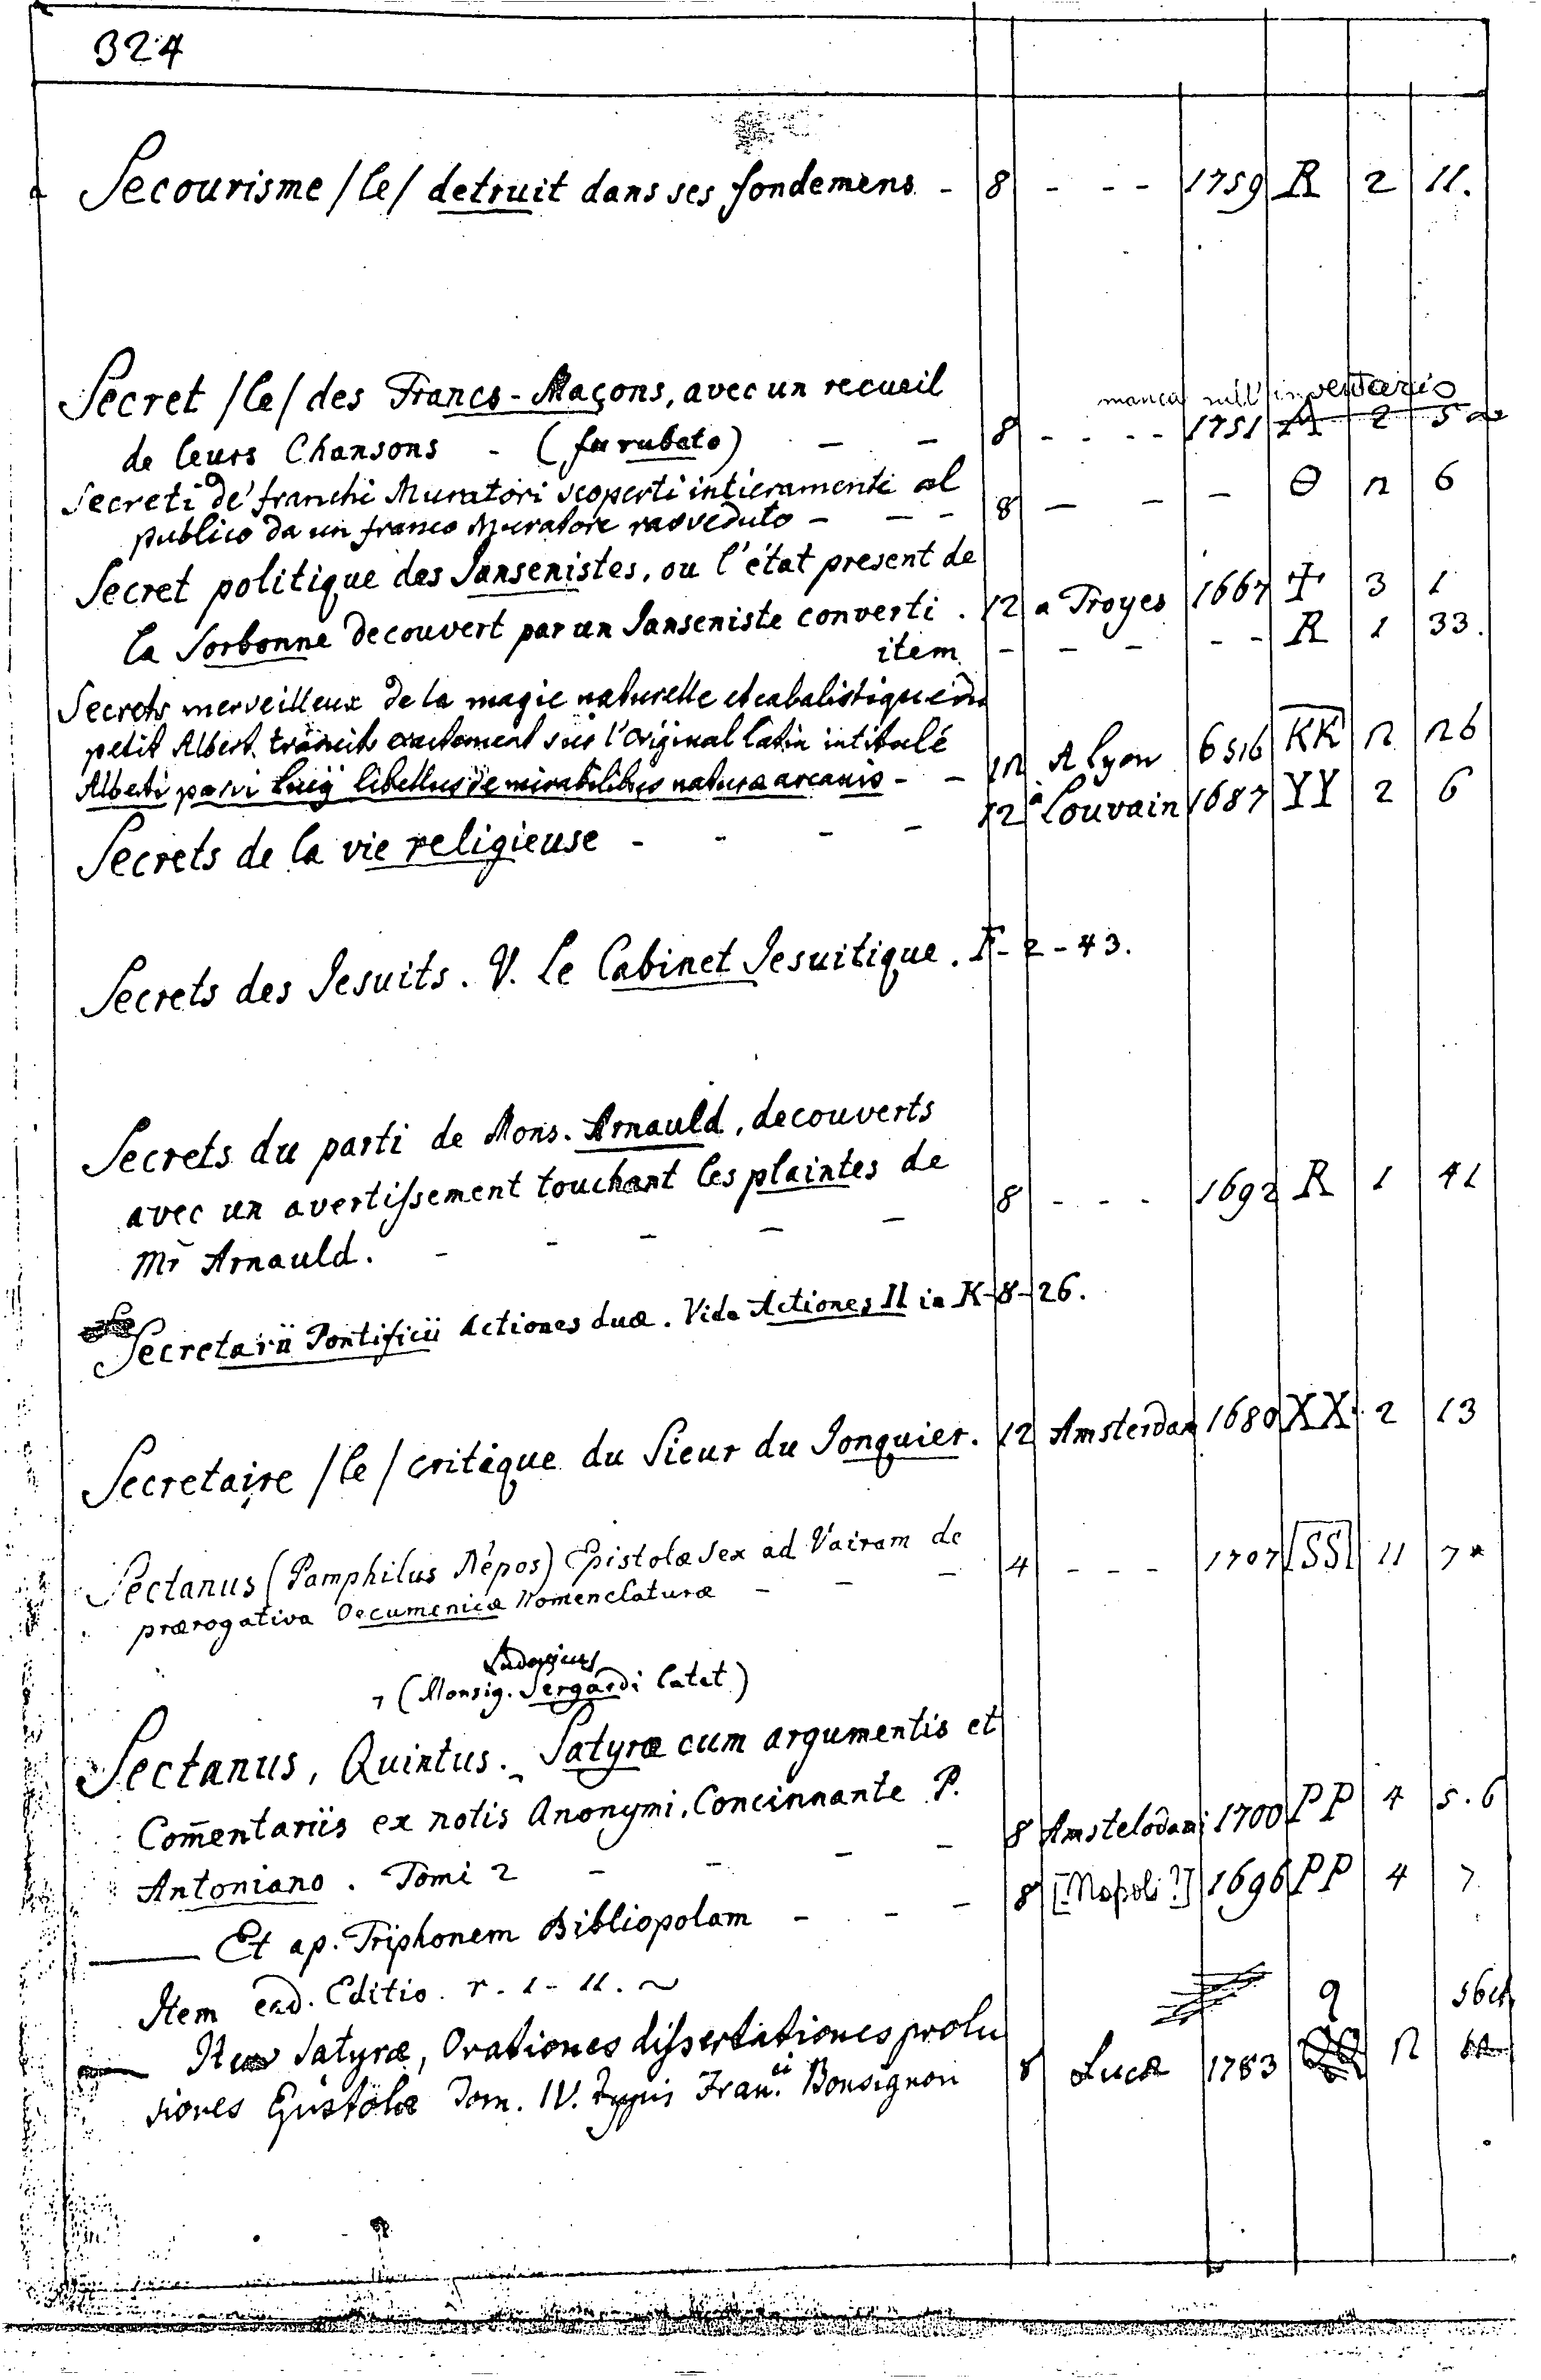 324
Secourisme /le/ detruit dans ses fondemens - 8 - - - 1759 R 2 11.
Secret /le/ des Francs-Maçons, avec un recueil
manca nell'inventario
de leurs Chansons - (fu rubato) - - 8 - - - - 1751 A 2 5
Secreti de' franchi Muratori scoperti intieramente al
publico da un franco Muratore ravveduto - - - 8 - - - Θ 2 6
Secret politique des Jansenistes, ou l'état present de
la Sorbonne decouvert par un Janseniste converti . 12 a Troyes 1667 3 1
item - - - - - R 1 33.
Secrets merveilleux de la magie naturelle et cabalistique du
petit Albert traduits exactement sur l'original latin intitulé
Alberti parvi Lucij libellus de mirabilibus naturæ arcanis - - 12 A Lyon 6516 KK 2 26
Secrets de la vie religieuse - - - - 12 à Louvain 1687 YY 2 6
Secrets des Jesuits. V. Le Cabinet Jesuitique. F-2-43.
Secrets du parti de Mons. Arnauld, decouverts
avec un avertissement touchant les plaintes de
Mr Arnauld. - - - - - 8 - - - 1692 R 1 41
Secretarii Pontificii Actiones duæ. Vide Actiones II in K-8-26.
Secretaire /le/ critique du Sieur du Jonquier. 12 Amsterdam 1680 XX 2 13
Sectanus (Pamphilus Népos) Epistolæ sex ad Vairam de
prærogativa Oecumenicæ Nomenclaturæ - - - 4 - - - 1707 SS 11 7*
Ludovicus
(Monsig. Sergardi latet)
Sectanus, Quintus. Satyræ cum argumentis et
Com̄entariis ex notis Anonymi, Concinnante P.
Antoniano. Tomi 2 - - - - 8 Amstelodami 1700 PP 4 5.6
Et ap. Triphonem Bibliopolam - - - 8 [Napoli?] 1696 PP 4 7
Item ead. Editio. r. 1 - 11. ~
Item Satyræ, Orationes dissertationes prolu
siones Epistolæ Tom. IV. Typis Fran.ci Bonsignori 8 Lucæ 1783 q 2